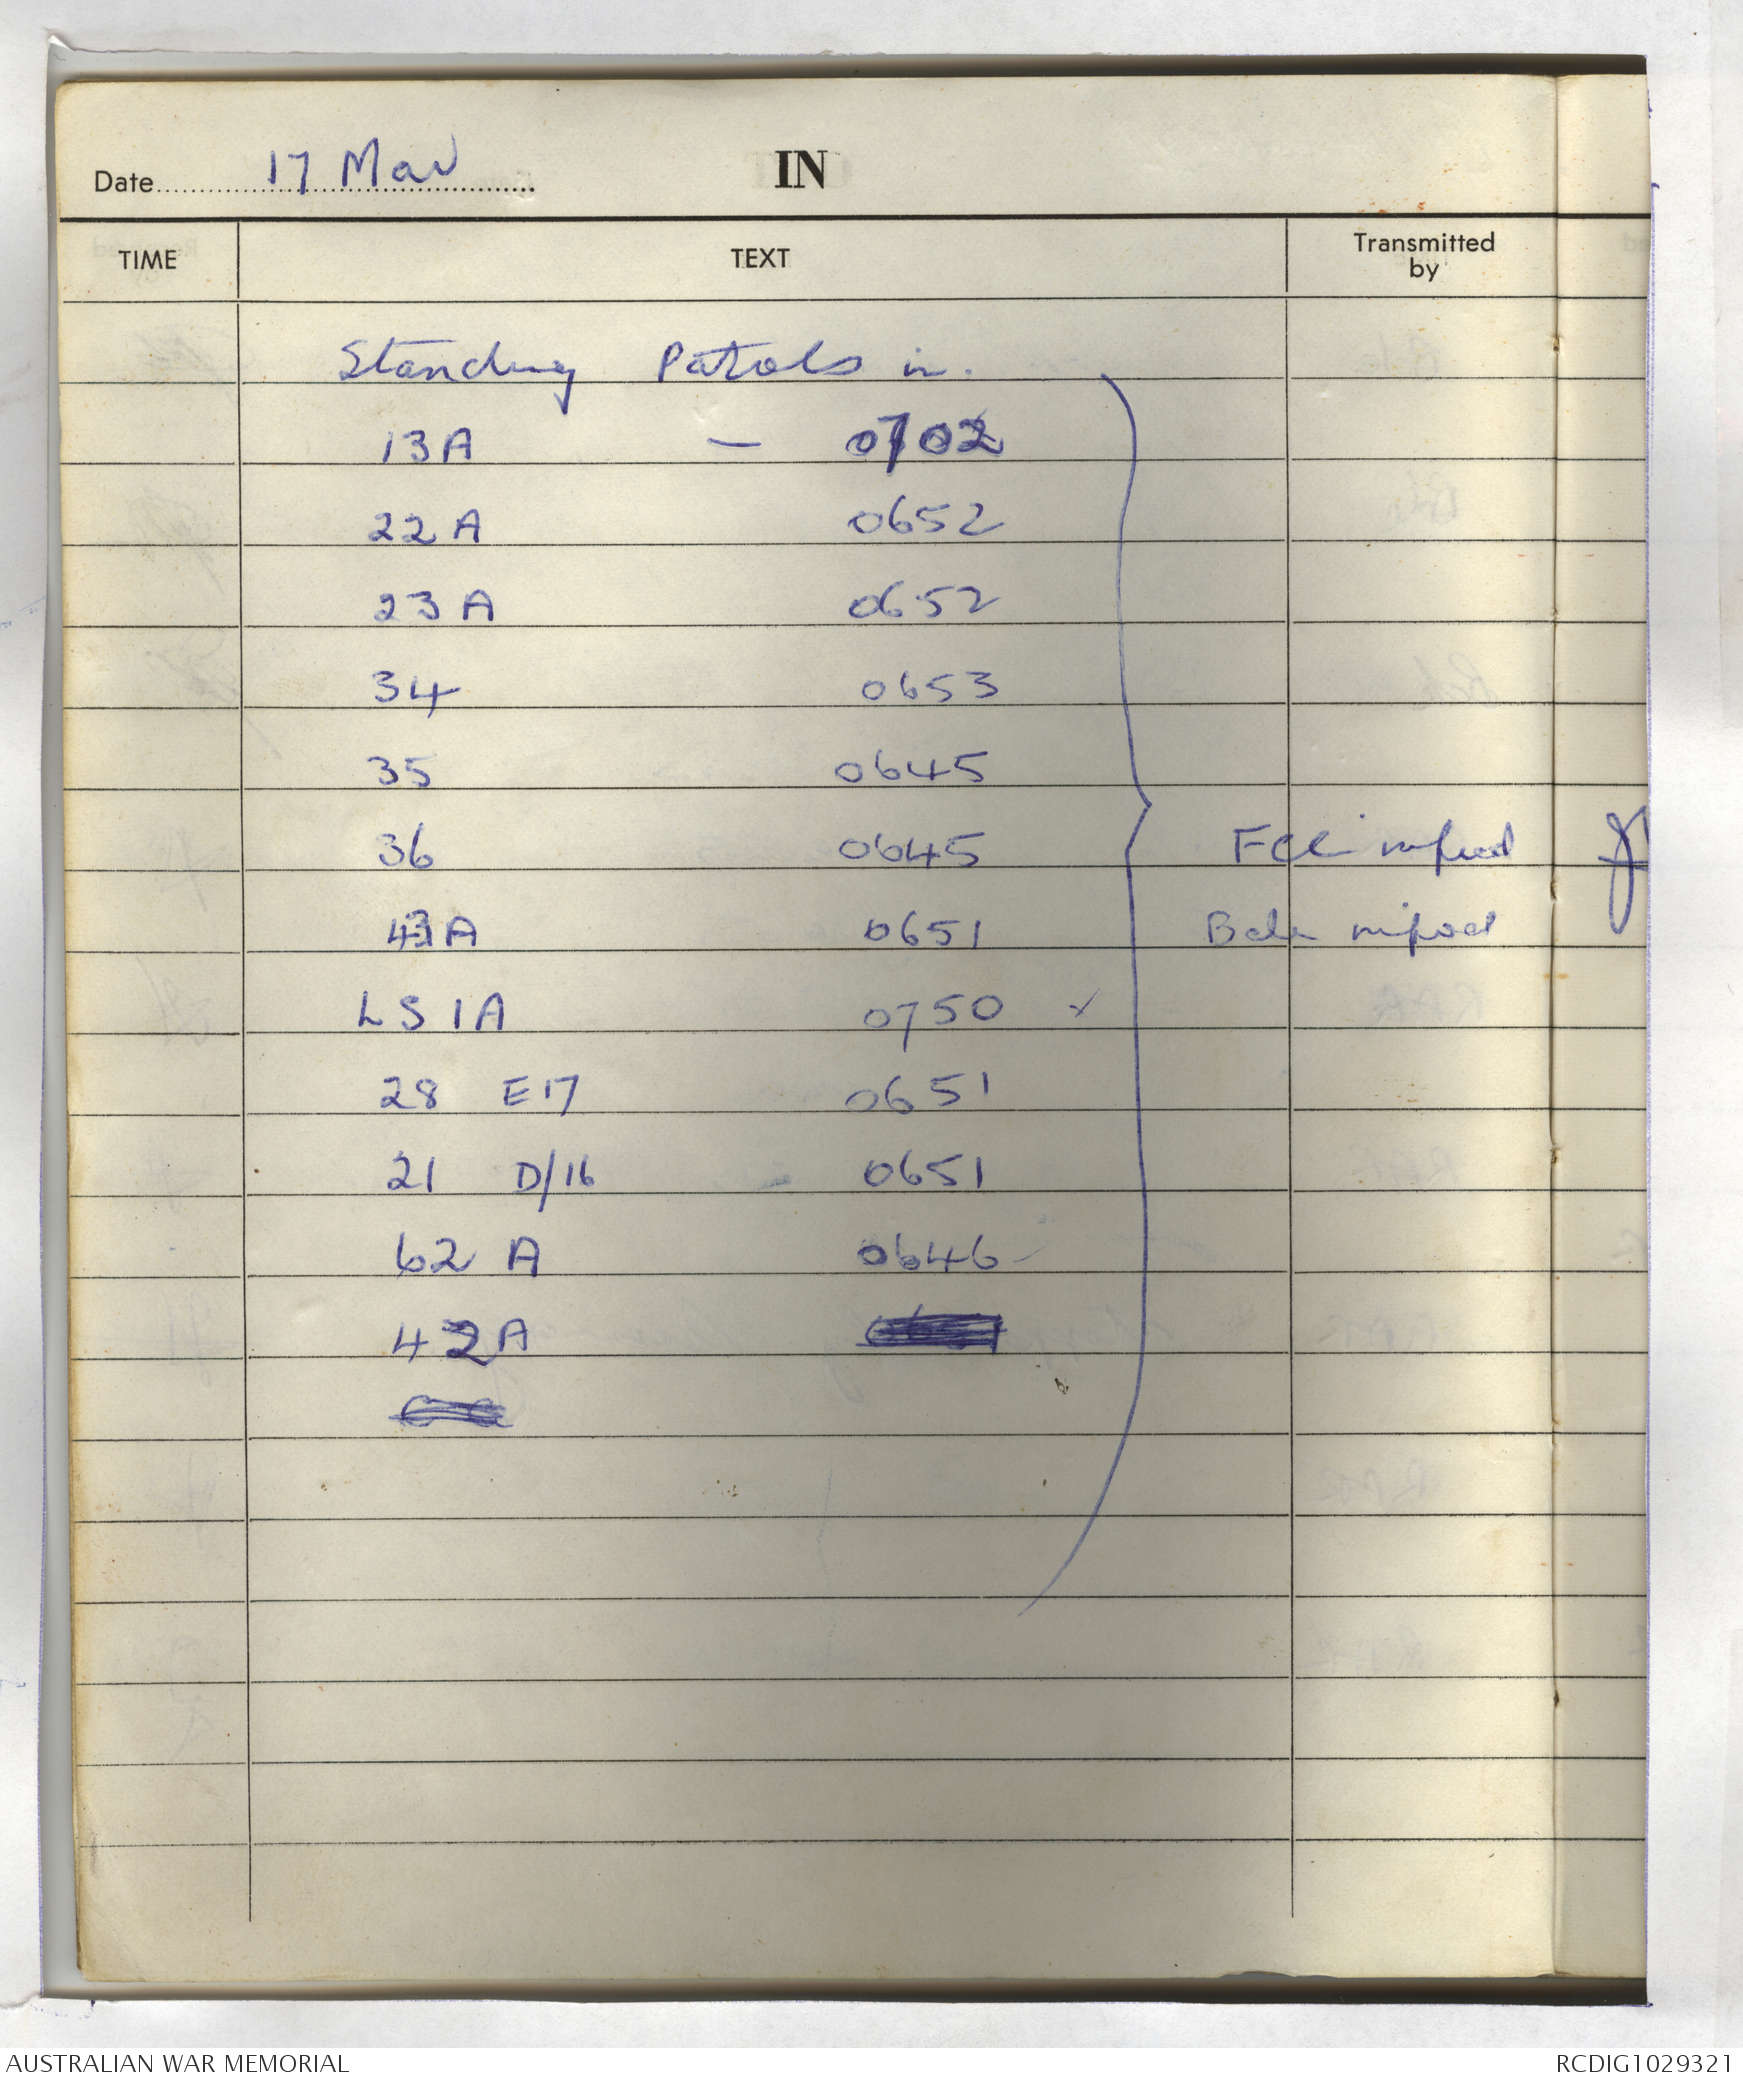 Date 17 Mar IN
TIME TEXT Transmitted by
Standing Patrols in.
13A — 0702
22A 0652
23A 0652
34 0653
35 0645
36 0645 informed
43A 0651 informed
LS1A 0750 ✓
28 E17 0651
21 D/16 0651
62 A 0646
42A
AUSTRALIAN WAR MEMORIAL RCDIG1029321